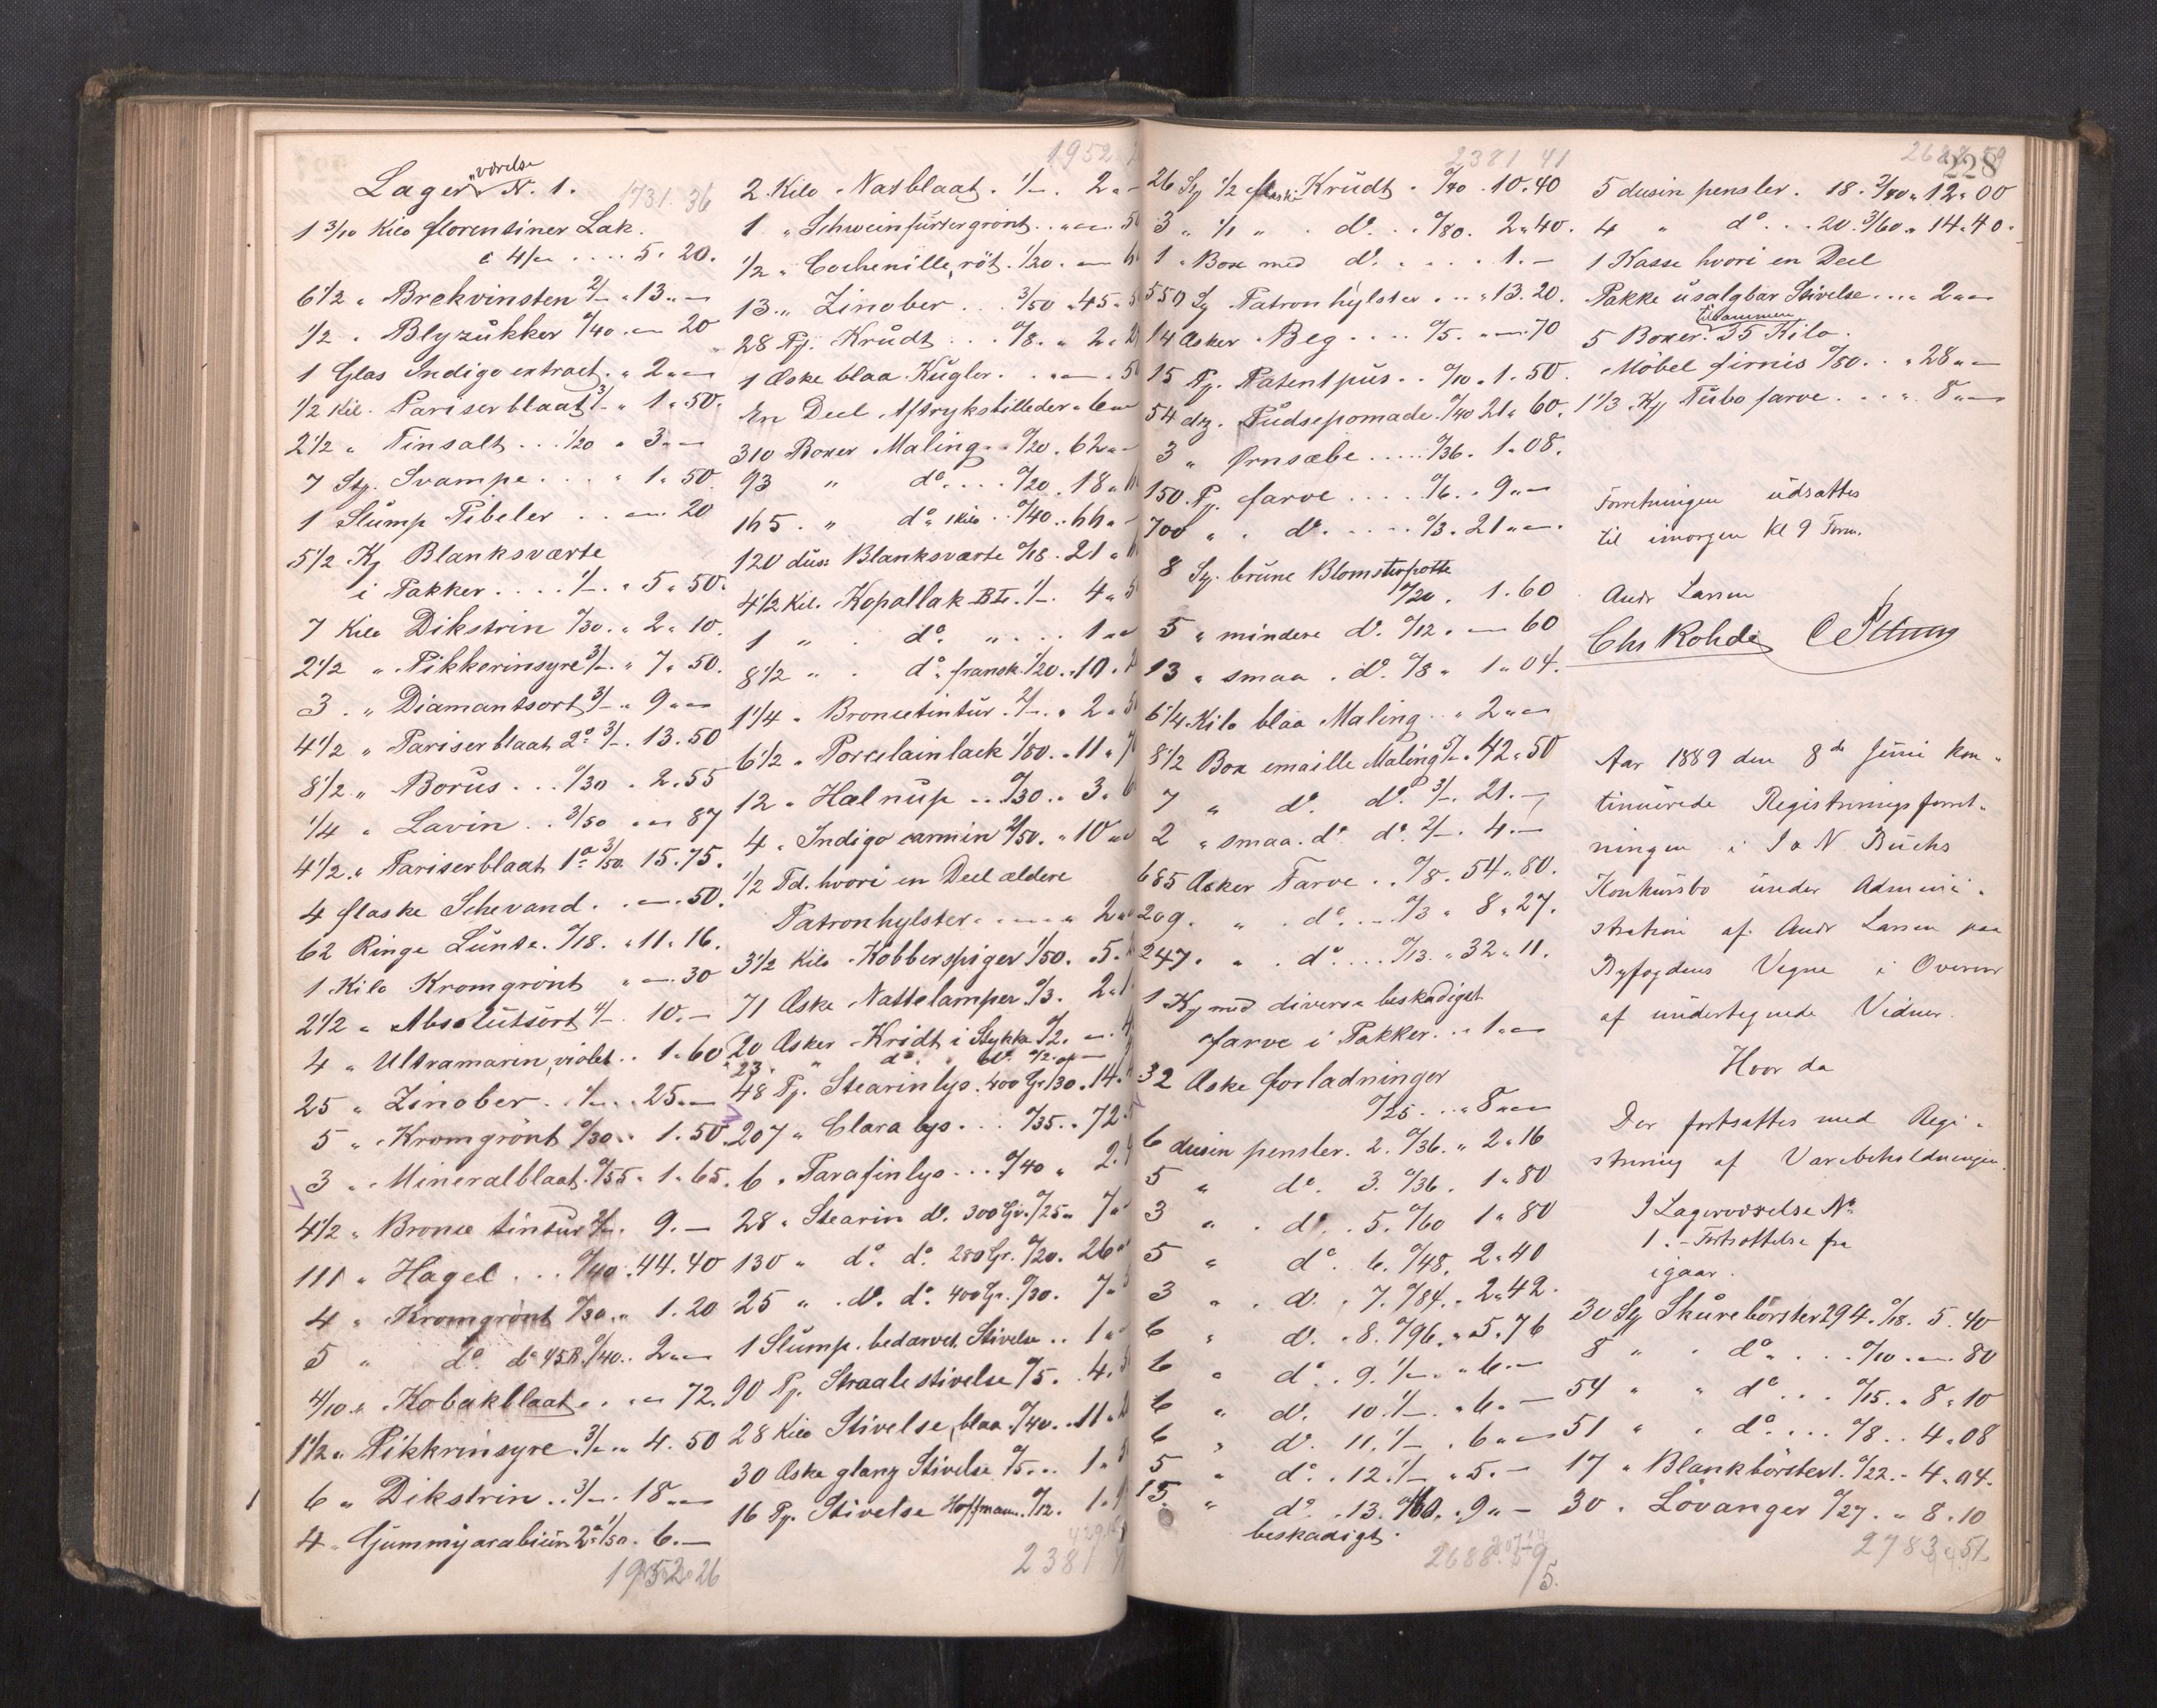 Lagerværelse N. 1.
1731.36
1 3/10 Kilo florentiner Lak.
a 4/- .... 5.20.
6 1/2 " Brekvinsten 2/- " 13 " -
1/2 " Blyzukker 0/40 " - 20
1 Glas Indigo extract . " 2 " -
1/2 Kil. Pariserblaat 3/- " 1 " 50.
2 1/2 " Tinsalt ... 1/20 " 3 " -
7 Stg. Svampe .... " 1 " 50
1 Slump Pibeler .. " - 20
5 1/2 Kg Blanksværte
i Pakker .... 1/- " 5 " 50.
7 Kilo Dikstrin 0/30 . " 2 " 10.
2 1/2 " Pikkerinsyre 3/- " 7 " 50.
3 " Diamantsort 3/- " 9 " -
4 1/2 " Pariserblaat 2º 3/- . 13.50
8 1/2 " Borus ... 0/30 . 2.55
1/4 " Lavin .. 3/50 " - 87
4 1/2 " Pariserblaat 1ª 3/50 15.75.
4 flaske Schevand . . - . 50.
62 Ringe Lunte . 0/18 . " 11 " 16.
1 Kilo Kromgrønt " - 30
2 1/2 " Absolutsort 4/- 10. -
4 " Ultramarin, violet .. 1.60
25 " Zinober . 1/- . 25 " -
5 " Kromgrønt 0/30 . 1.50
3 " Mineralblaat 0/55 " 1.65.
4 1/2 " Bronce tintur 2/- 9. -
111 " Hagel ... 0/40 . 44.40
4 " Kromgrønt 0/30 " 1.20
5 " dº dº 45 R. 0/40 .. 2 " -
4/10 " Kobaltblaat . . " - 72.
1 1/2 " Pikkrinsyre 3/- " 4.50
6 " Dikstrin .. 3/- . 18 " -
4 " Gummijarabicum 2ª 1/50 . 6. -
1952.26
1952
2 Kilo Natblaat . 1/- . 2 " -
1 " Schweinfurtergrønt . . " -
1/2 " Cochenille, röt . 1/20 . -
13 " Zinober ... 3/50 " 45 "
28 Pg. Krudt ... 0/8 . " 2 "
1 Æske blaa Kugler . . " -
En Deel Aftryksbilleder " 6 " -
310 Boxer Maling .. 0/20 . 62 " -
93 " dº .... 0/20 . 18 "
165 " dº 1 kilo .. 0/40 .. 66 " -
120 dus: Blanksværte 0/18 . 21 "
4 1/2 Kil. Kopallak B I. 1/- . 4 "
1 " dº " .... 1 " -
8 1/2 " dº fransk 1/20 . 10 .
1 1/4 " Broncetintur . 2/- . " 2 "
6 1/2 " Porcelainlack 1/80 . " 11 "
12 " Hælnup .. 0/30 .. 3 "
4 " Indigo carmin 2/50 . " 10 " -
1/2 Td. hvori en Deel ældere
Patronhylster . . . . " 2 " -
3 1/2 Kilo Kobberspiger 1/50 . " 5 "
71 Æske Nattelamper 0/3 . 2 "
20 Æsker Kridt i Stykke 0/2 . " -
23 " dº dº 0/2 . " -
48 Pg. Stearinlys . 400 Gr. 0/30 . 14 "
207 " Clara lys ... 0/35 .. 72.
6 " Parafinlys ... 0/40 " 2.
28 " Stearin dº 300 Gr. 0/25 " 7 "
130 " dº dº 280 Gr. 0/20 . 26 "
25 " dº dº 400 Gr. 0/30 . 7 "
1 Slump bedærvet Stivelse .. 1 "
90 Pg. Straalestivelse 0/5 . . 4 "
28 Kilo Stivelse, blaa 0/40 . " 11 "
30 Æske glanz Stivelse 0/5 ... 1 "
16 Pg. Stivelse Hoffmann 0/12 . 1 "
2381
2381 41
26 Stg 1/2 flaske Krudt . 0/40 . 10.40
3 " 1/1 " dº .. 0/80 . 2 " 40.
1 " Box med dº .... 1. -
550 Stg Patronhylster ... " 13.20.
14 Æsker Beg .... 0/5 . " - 70
15 Pg. Patentpus .. 0/10 " 1.50.
54 dz. Pudsepomade 0/40 21 " 60.
3 " Ørnsæbe ..... 0/36 . 1.08.
150 Pg. farve .... 0/6 . . 9 " -
700 " " dº ..... 0/3 . 21 " -
8 Stg. brune Blomsterpotte
0/20 . 1.60
5 " mindere dº 0/12 . - 60
13 " smaa . dº 0/8 " 1 " 04.
6 1/4 Kilo blaa Maling .. " 2 " -
8 1/2 Box emaille Maling 5/- . 42 " 50
7 " dº dº 3/- . 21. -
2 " smaa dº dº 2/- . 4. -
685 Æsker Farve .. 0/8 . 54 " 80.
209 . " dº ... 0/3 " 8 " 27.
247 . " dº .... 0/13 . " 32 " 11.
1 Kg med diverse beskadiget
farve i Pakker . . " 1 " -
32 Æske forladninger
0/25 ... " 8 " -
6 dusin pensler . 2 . 0/36 . " 2 " 16
5 " dº . 3 . 0/36 . 1 " 80
3 " dº . 5 . 0/60 1 " 80
5 " dº 6 . 0/48 . 2 " 40
3 " dº . 7 . 0/84 . " 2 " 42.
6 " dº . 8 . 0/96 . " 5 " 76
6 " dº . 9 . 1/- . " 6 " -
6 " dº 10 . 1/- . " 6 . -
6 " dº 11 . 1/- . 6 " -
5 " dº . 12 . 1/- " 5 . -
15 " dº . 13 . 0/60 . " 9 " -
beskadigt .
2688.59
228
5 dusin pensler . 18 . 2/40 " 12 " 00
4 " dº ... 20 . 3/60 " 14 " 40.
1 Kasse hvori en Deel
Pakke usalgbar Stivelse ... 2 " -
5 Boxer tilsammen 35 Kilo .
Möbel firnis 0/80 . . " 28 " -
1 1/3 Kg Tubo farve .... " 8 " -
Forretningen udsattes
til imorgen Kl 9 Form.
Andr Larsen
Chr Rohde
Aar 1889 den 8de Juni kon-
tinuerede Registreringsforret-
ningen i I & N Buchs
Konkursbo under Admini-
stration af Andr Larsen paa
Byfogdens Vegne i Overvær
af undertegnede Vidner.
Hvor da
Der fortsattes med Regi-
strering af Varebeholdningen.
I Lagerværelse Nº
1. - Fortsættelse fra
igaar.
30 Stg Skurebörster 294 . 0/18 . 5.40
8 " dº .... 0/10 . - 80
54 " " dº ... 0/15 . " 8 " 10
51 " " dº .... 0/8 .. 4 " 08
17 " Blankbörster 1. 0/22 . - 4 " 04.
30 " Lövanger 0/27 . " 8 . 10
2783.51